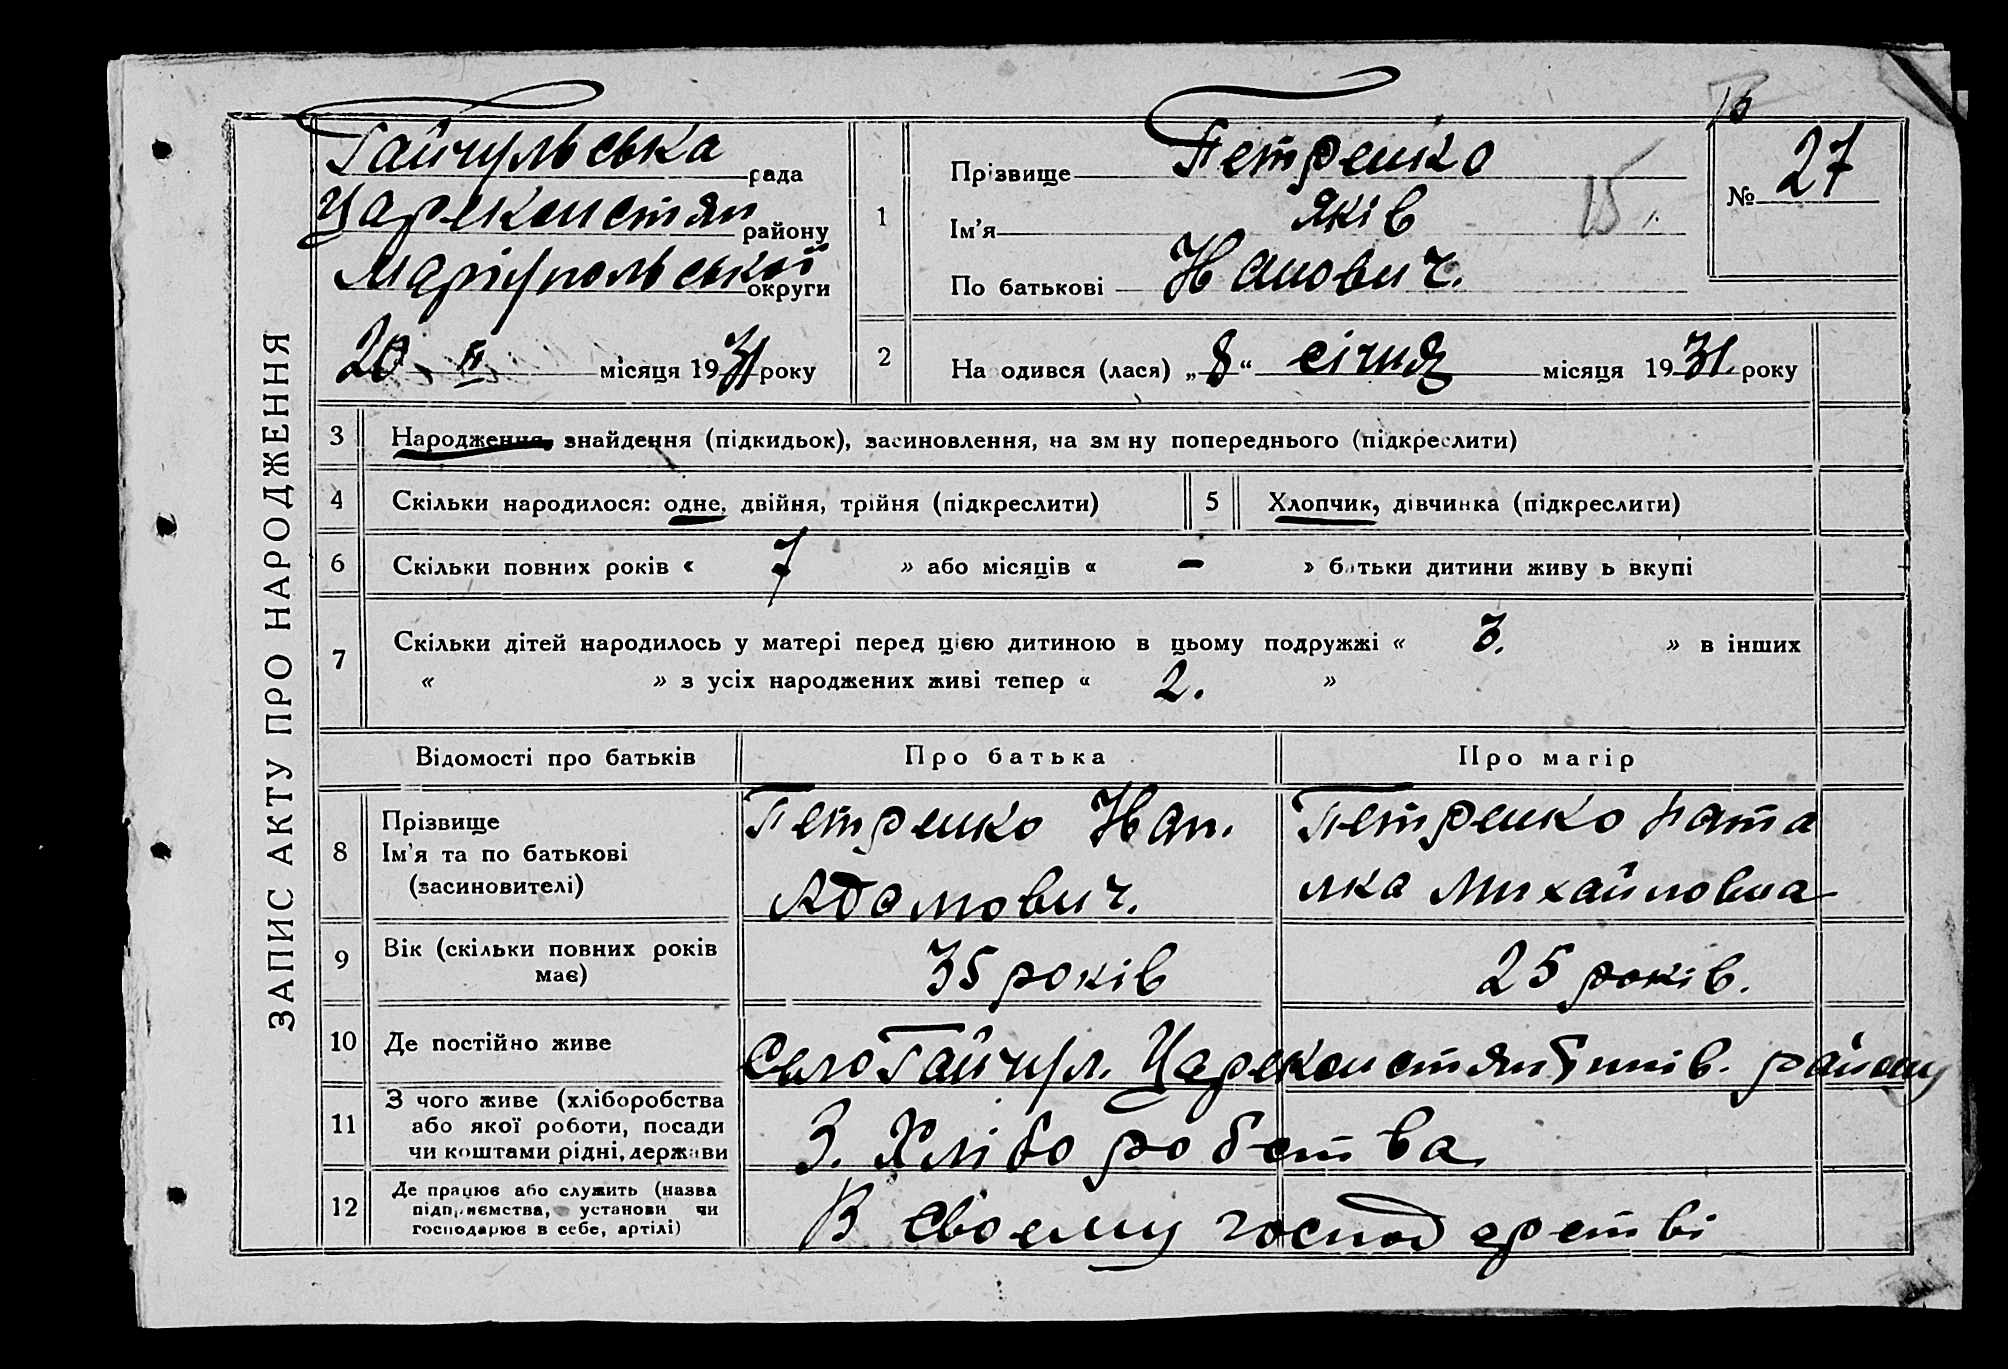 ЗАПИС АКТУ ПРО НАРОДЖЕННЯ
Гайчульська рада
Царекостян району
Маріупольської округи
20 II місяця 1931 року
1
Прізвище Петренко
Ім'я Яків
По батькові Иванович.
15
№ 27
2 На одився (лася) „8“ січня місяця 1931 року
3 Народження, знайдення (підкидьок), засиновлення, на зм ну попереднього (підкреслити)
4 Скільки народилося: одне, двійня, трійня (підкреслити)
5 Хлопчик, дівчинка (підкреслити)
6 Скільки повних років « 7 » або місяців « – » батьки дитини живу ь вкупі
7 Скільки дітей народилось у матері перед цією дитиною в цьому подружжі « 3. » в інших
« » з усіх народжених живі тепер « 2. »
Відомості про батьків Про батька Про матір
8 Прізвище
Ім'я та по батькові
(засиновителі)
Петренко Иван.
Адамович.
Петренко Ната
лка Михайловна
9 Вік (скільки повних років
має)
35 років
25 років.
10 Де постійно живе
Село Гайчул. Царекостянтинів. району
11 З чого живе (хліборобства
або якої роботи, посади
чи коштами рідні, держави
З. Хліборобства
12 Де працює або служить (назва
підприємства, установи чи
господарює в себе, артілі)
В своему господарстві